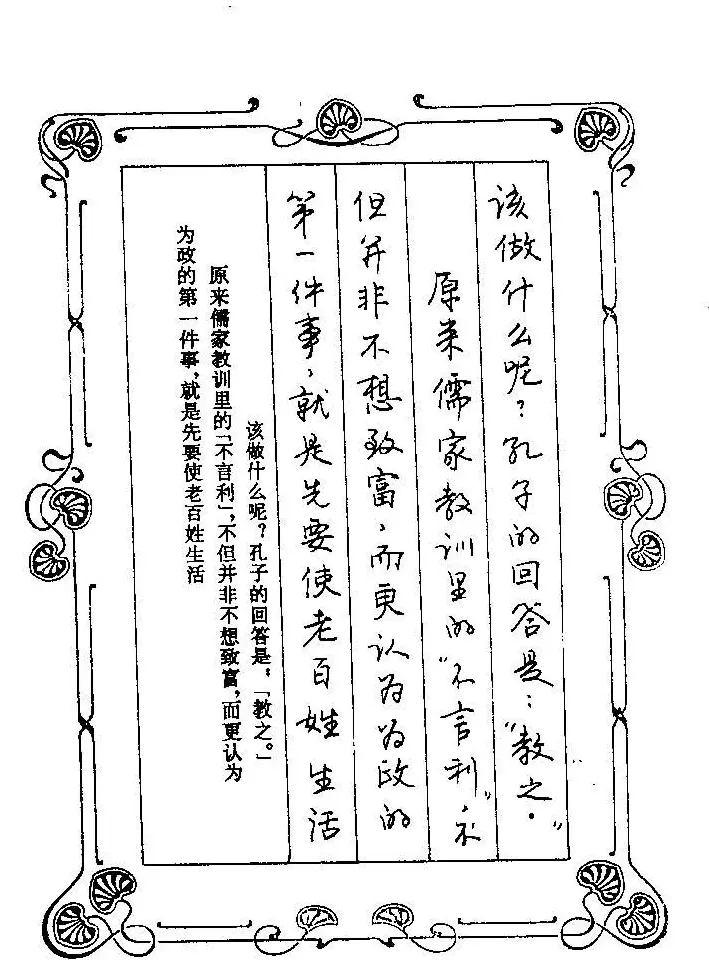 该做什么呢？孔子的回答是：“教之。”
原来儒家教训里的“不言利”，不
但并非不想致富，而更认为为政的
第一件事，就是先要使老百姓生活
该做什么呢？孔子的回答是：「教之。」
原来儒家教训里的「不言利」，不但并非不想致富，而更认为
为政的第一件事，就是先要使老百姓生活